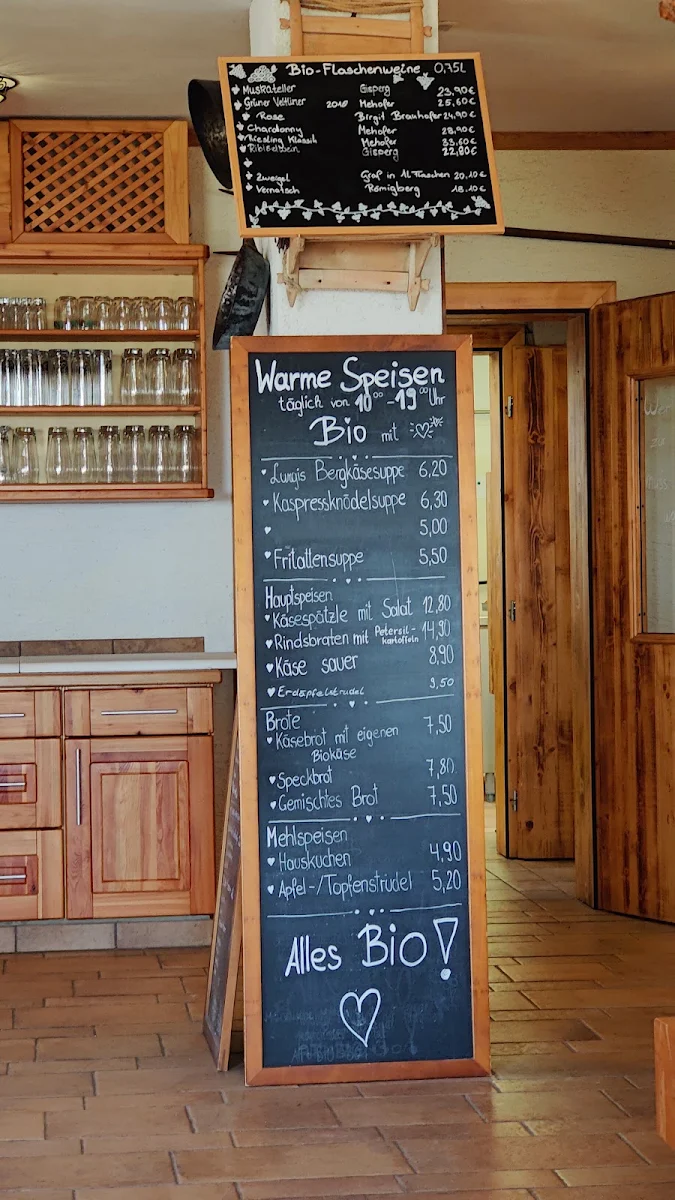 Bio-Flaschenweine 0,75L
Muskateller Gisperg 23,90€
Grüner Veltliner 2019 Mehofer 25,60€
Rose Birgit Braunhofer 24,90€
Chardonny Mehofer 28,90€
Riesling Klassik Mehofer 33,60€
Ribiselwein Gisperg 22,80€
Zweigel Graf in 1l Flaschen 20.10€
Vernatsch Remigberg 18.10€
Warme Speisen
täglich von 10⁰⁰-19⁰⁰Uhr
Bio mit
Luwis Bergkäsesuppe 6,20
Kaspressknödelsuppe 6,30
5,00
Fritattensuppe 5,50
Hauptspeisen
Käsespätzle mit Salat 12,80
Rindsbraten mit Petersil-kartoffeln 14,90
Käse sauer 8,90
Erdäpfelstrudel 9,50
Brote
Käsebrot mit eigenen 7,50
Biokäse
Speckbrot 7,80
Gemischtes Brot 7,50
Mehlspeisen
Hauskuchen 4,90
Apfel-/Topfenstrudel 5,20
Alles Bio!